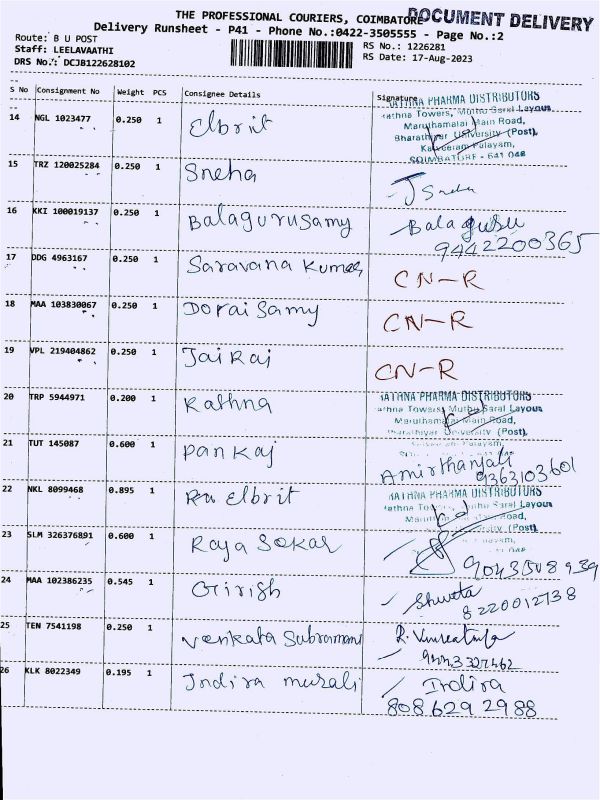 THE PROFESSIONAL COURIERS, COIMBATORE
DOCUMENT DELIVERY
Delivery Runsheet - P41 - Phone No.:0422-3505555 - Page No.:2
Route: B U POST
RS No.: 1226281
Staff: LEELAVAATHI
RS Date: 17-Aug-2023
DRS No.: DCJB122628102
S No Consignment No Weight PCS Consignee Details Signature
RATHNA PHARMA DISTRIBUTORS
Rathna Towers, Muthu Saral Layout
Maruthamalai Main Road,
Bharathiyar University (Post),
COIMBATORE - 641 046
14 NGL 1023477 0.250 1 Elbrit
15 TRZ 120025284 0.250 1 Sneha Sneha
16 KKI 100019137 0.250 1 Balagurusamy Balagusu
9442200365
17 DDG 4963167 0.250 1 Saravana Kumar CN-R
18 MAA 103830067 0.250 1 Doraisamy CN-R
19 VPL 219404862 0.250 1 Jairaj CN-R
20 TRP 5944971 0.200 1 Rathna
RATHNA PHARMA DISTRIBUTORS
athna Towers, Muthu Saral Layout
Maruthamalai Main Road,
Bharathiyar University (Post),
21 TUT 145087 0.600 1 Pankaj Amirthanjali
9363103601
22 NKL 8099468 0.895 1 Ra Elbrit
RATHNA PHARMA DISTRIBUTORS
23 SLM 326376891 0.600 1 Raja Sekar
24 MAA 102386235 0.545 1 Girish Shweta
8220012738
25 TEN 7541198 0.250 1 Venkata Subramani
26 KLK 8022349 0.195 1 Indira murali Indira
808 629 2988